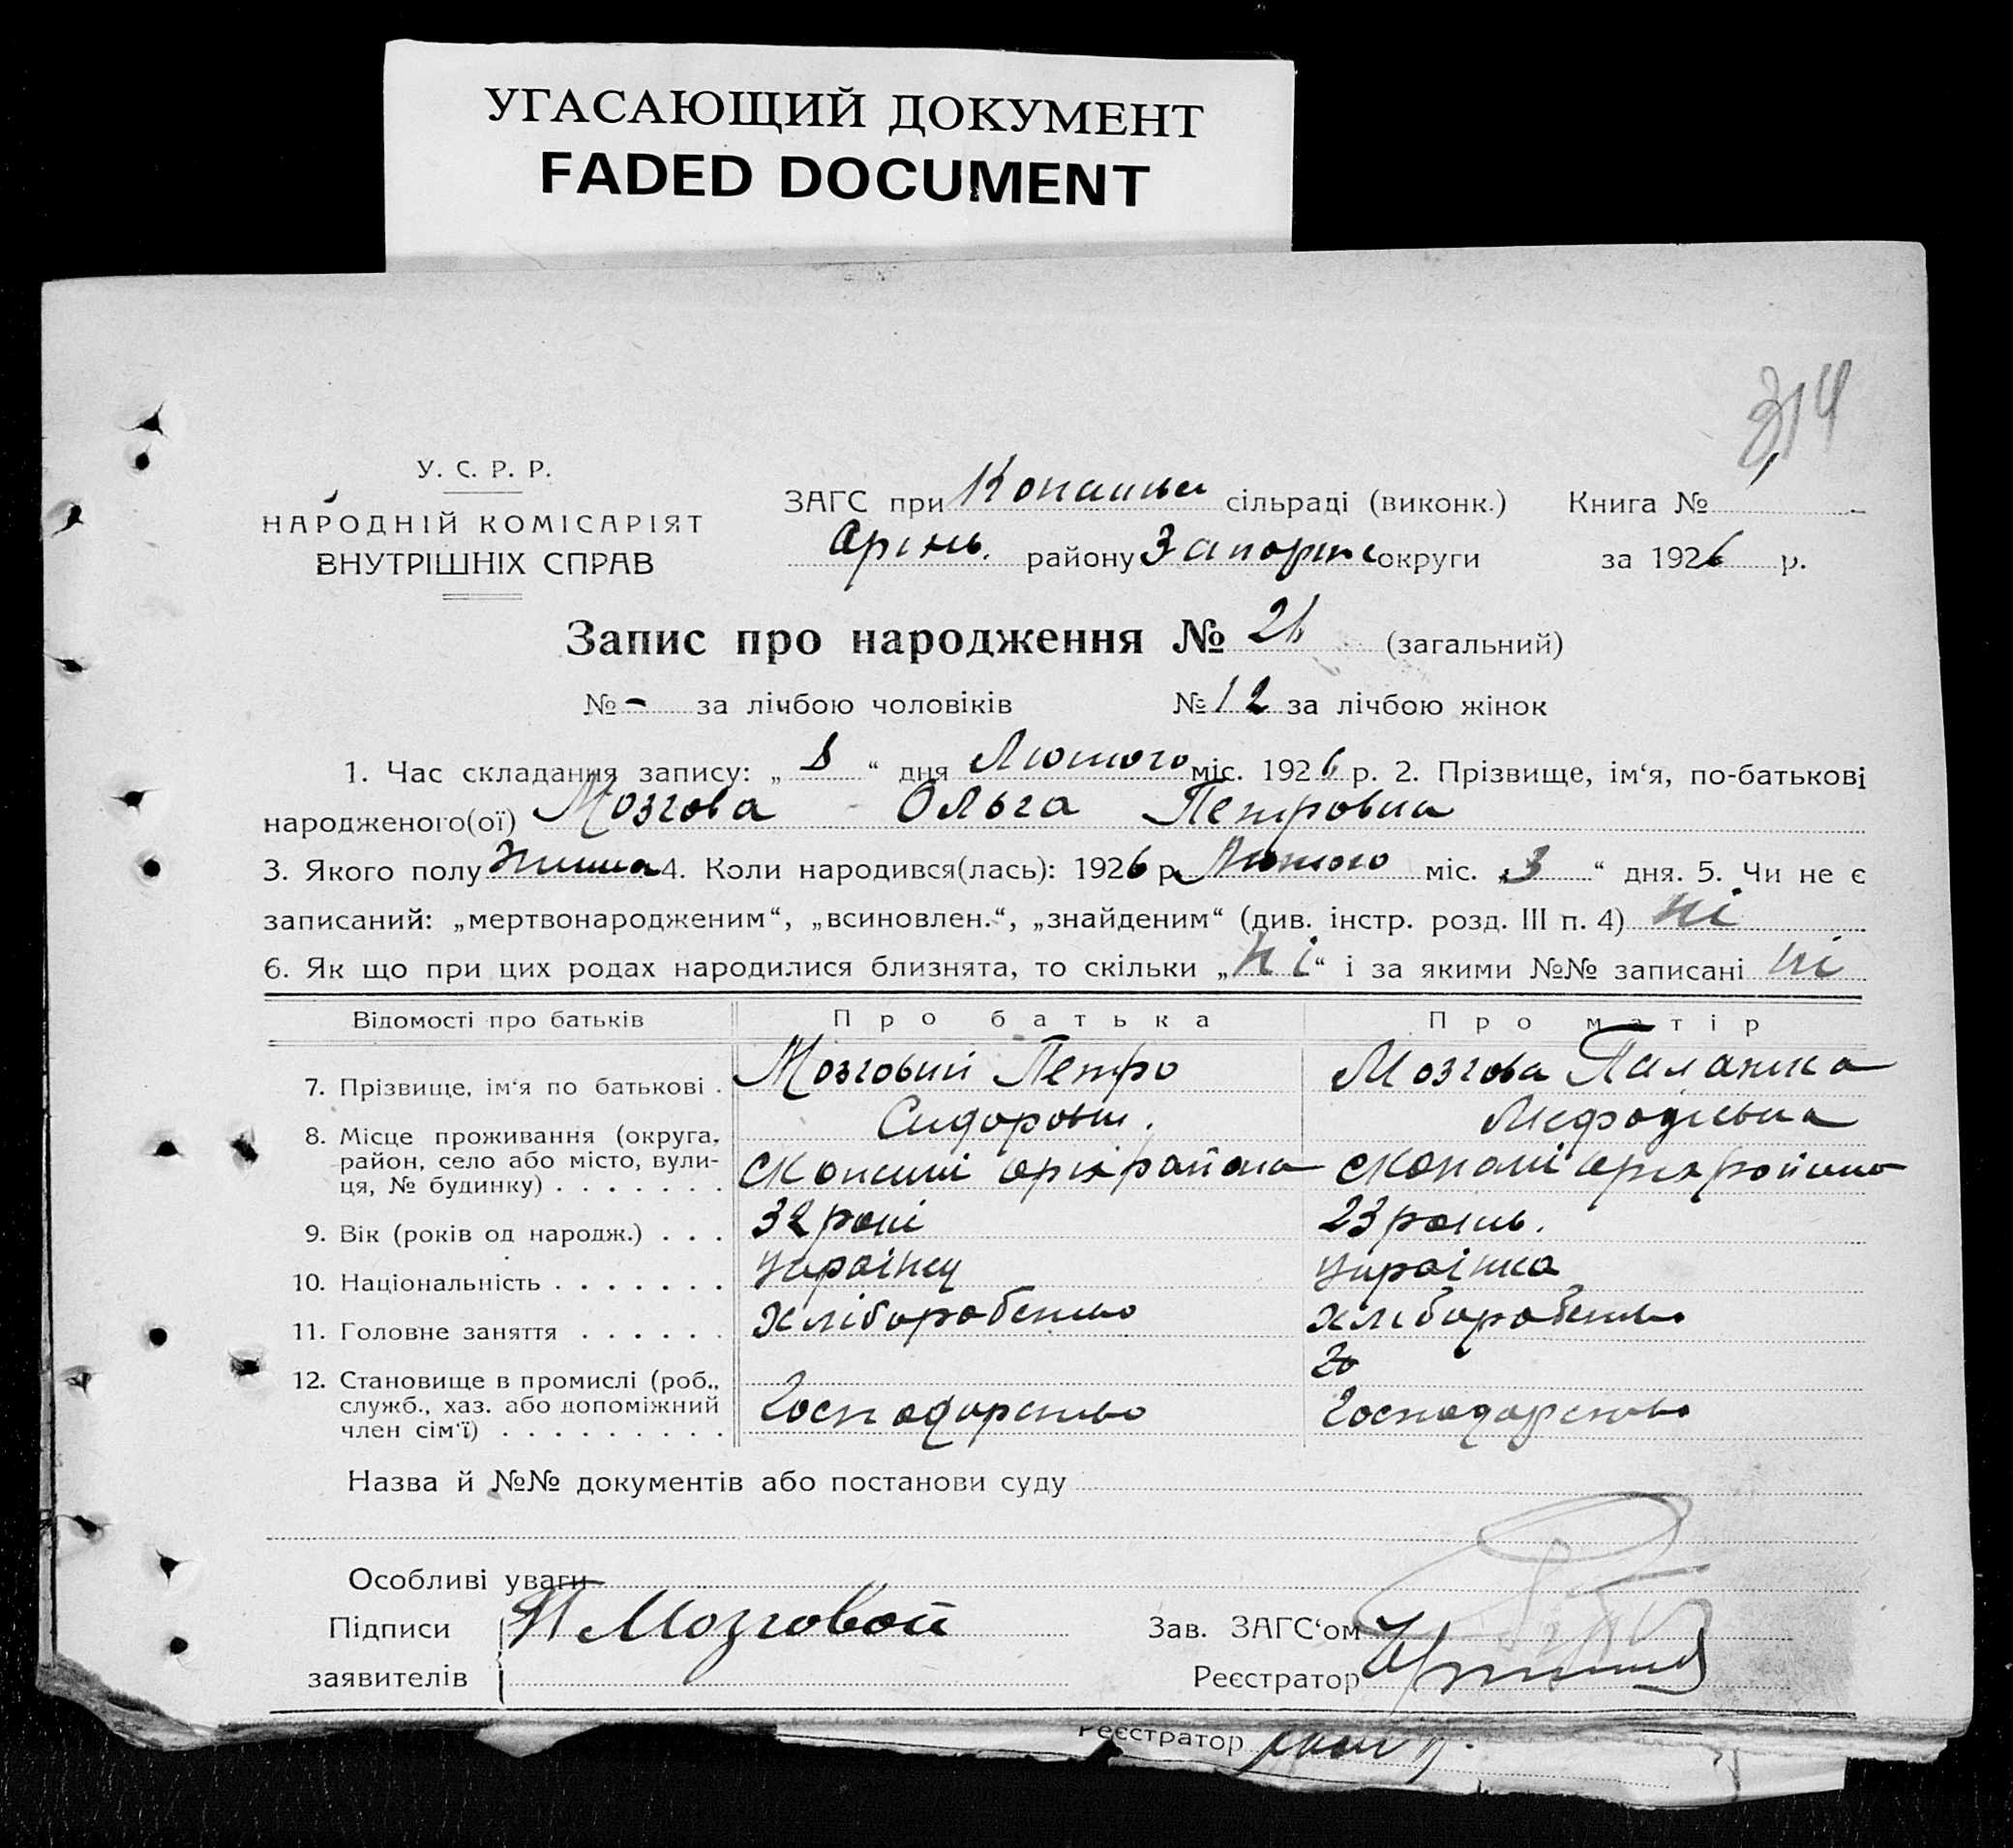 УГАСАЮЩИЙ ДОКУМЕНТ
FADED DOCUMENT
314
У. С. Р. Р.
НАРОДНІЙ КОМІСАРІЯТ
ВНУТРІШНІХ СПРАВ
ЗАГС при Копання сільраді (виконк.) Книга №
Оріхів. району Запоріж округи за 1926 р.
Запис про народження № (загальний)
№ - за лічбою чоловіків № 12 за лічбою жінок
1. Час складання запису: „ 8 “ дня Лютого міс. 1926 р. 2. Прізвище, ім‘я, по-батькові
народженого(ої) Мозгова Ольга Петровна
3. Якого полу 4. Коли народився(лась): 1926 р. Лютого міс. „ 3 “ дня. 5. Чи не є
записаний: „мертвонародженим“, „всиновлен.“, „знайденим“ (див. інстр. розд. III п. 4) ні
6. Як що при цих родах народилися близнята, то скільки „ ні “ і за якими №№ записані ні
Відомості про батьків Про батька Про матір
7. Прізвище, ім‘я по батькові . Мозговий Петро Мозгова Палажка
Сидорович. Мефодієвна
8. Місце проживання (округа, район, село або місто, вулиця, № будинку) . . . . . . .
9. Вік (років од народж.) . . . 32 років 23 років.
10. Національність . . . . . . . Українец Українка
11. Головне заняття . . . . . . Хліборобство Хліборобство
12. Становище в промислі (роб., служб., хаз. або допоміжний член сім‘ї) . . . . . . . . . Господарство Господарство
Назва й №№ документів або постанови суду
Особливі уваги
Підписи П Мозговой Зав. ЗАГС‘ом
заявителів Реєстратор
Реєстратор